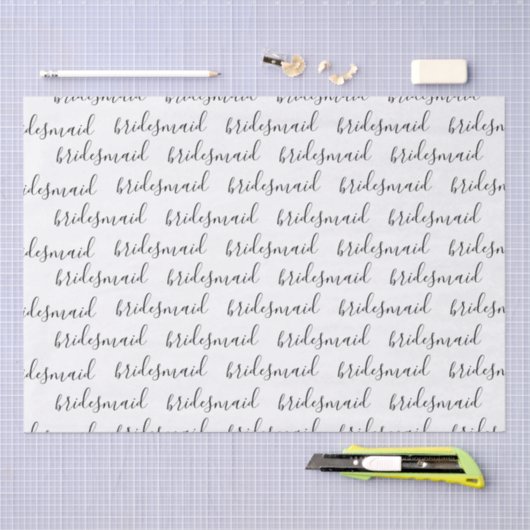 bridesmaid bridesmaid bridesmaid bridesmaid
ridesmaid bridesmaid bridesmaid bridesmaid brides
bridesmaid bridesmaid bridesmaid bridesmaid
ridesmaid bridesmaid bridesmaid bridesmaid brides
bridesmaid bridesmaid bridesmaid bridesmaid
ridesmaid bridesmaid bridesmaid bridesmaid brides
bridesmaid bridesmaid bridesmaid bridesmaid
ridesmaid bridesmaid bridesmaid bridesmaid brides
bridesmaid bridesmaid bridesmaid bridesmaid
ridesmaid bridesmaid bridesmaid bridesmaid brides
bridesmaid bridesmaid bridesmaid bridesmaid
ridesmaid bridesmaid bridesmaid bridesmaid brides